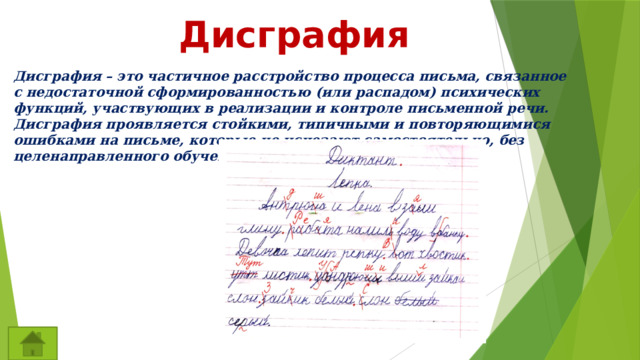 Дисграфия
Дисграфия – это частичное расстройство процесса письма, связанное
с недостаточной сформированностью (или распадом) психических
функций, участвующих в реализации и контроле письменной речи.
Дисграфия проявляется стойкими, типичными и повторяющимися
ошибками на письме, которые не исчезают самостоятельно, без
целенаправленного обуче
Диктант.
Лепка.
и Лена взали
глину. налили воду
Девочка лепит репку, вот хвостик.
листик.
слон. белый. слон белый
серый.